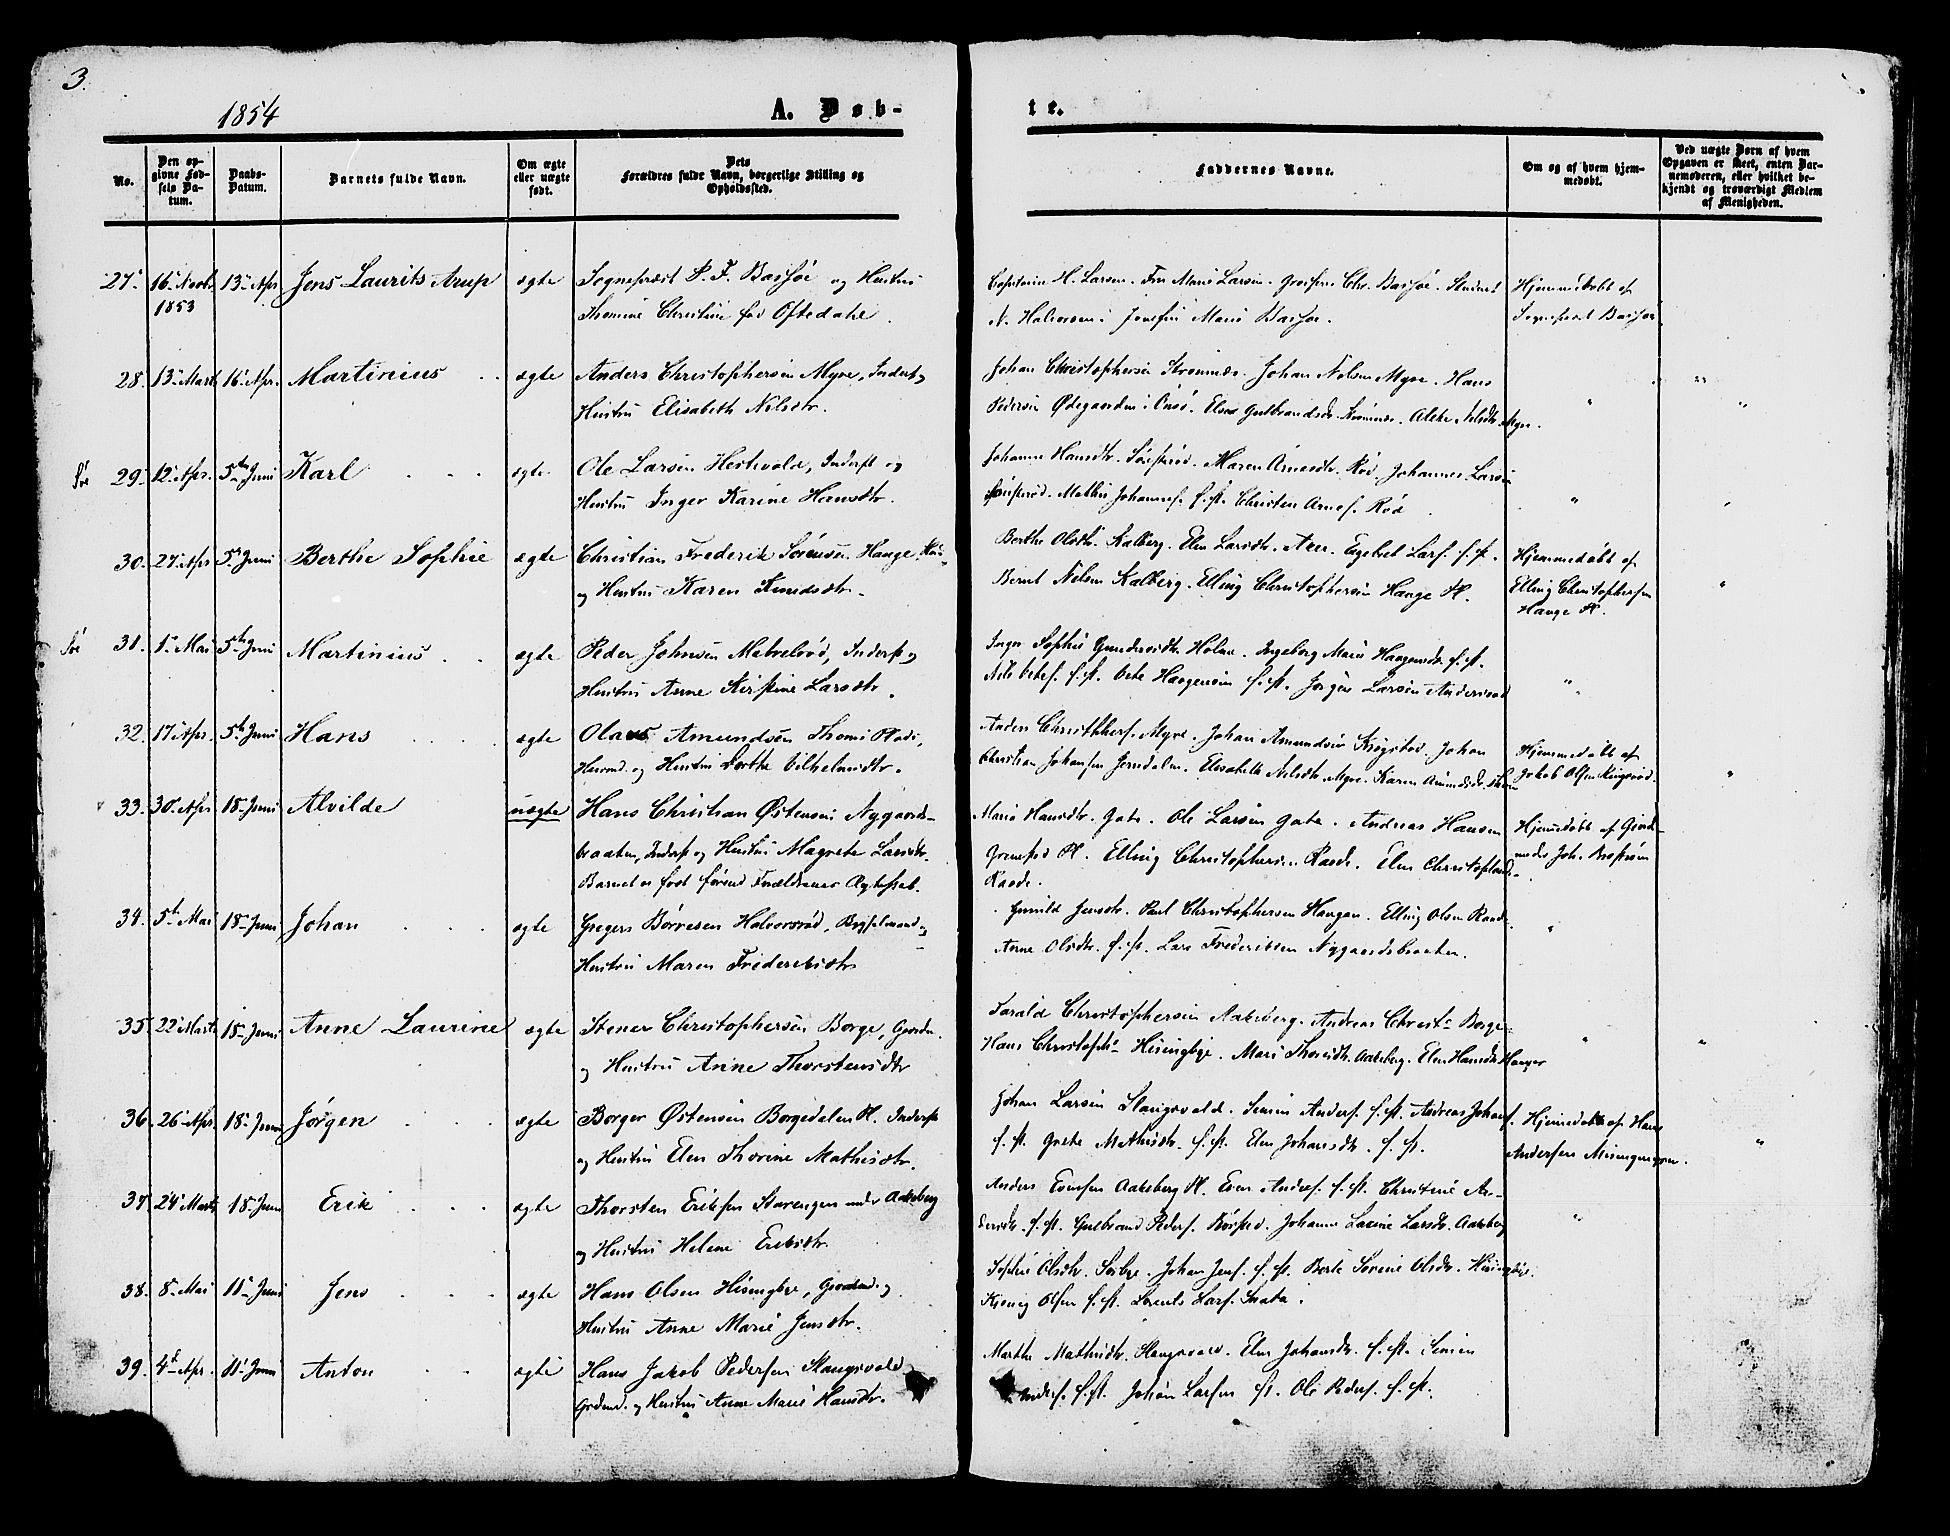 3.
1854
A. Døb-
te.
No.
Den opgivne Fødsels Datum.
Daabs-Datum.
Barnets fulde Navn.
Om ægte eller uægte født.
Dets Forældres fulde Navn, borgerlige Stilling og Opholdssted.
Faddernes Navne.
Om og af hvem hjemmedøbt.
Ved uægte Børn af hvem Opgaven er skeet, enten Barnemoderen, eller hvilket bekjendt og troværdigt Medlem af Menigheden.
27. 16. Novb. 1853 13. Apr Jens Laurits Arup ægte Sogneprest P. F. Bassøe og Hustru
Thomine Christine fød Oftedahl.
H. Larsen. Fru Marie Larsen. Chr. Bassøe. Student
N. Halvorsen. Marie Bassøe.
Hjemmedøbt af
Sogneprest Bassøe
28. 13. Marts 16. Apr. Martinius ægte Anders Christophersen Myre, Inderst og
Hustru Elisabeth Nilsdtr.
Johan Christophersen Strømnes. Johan Nilsen Myre. Hans
Pedersen Ødegaarden i Onsø. Else Gulbrandsdtr. Nilsdtr. Myre.
29. 12. Apr. 5te Juni Karl ægte Ole Larsen Hestvold, Inderst og
Hustru Inger Karine Hansdtr.
Johanne Hansdtr. Maren Arnesdtr. Rød. Johannes Larsen
Mathis Johannes. s. st. Christen Arnes. Rød
30. 27. Apr 5. Juni Berthe Sophie ægte Christian Frederik Sørensen Hauge
og Hustru Karen Knudsdtr.
Berthe Olsdtr. Kalberg. Elen Larsdtr. Engebret Lars. s. st.
Bernt Nilsen Kalberg. Elling Christophersen Hauge Pl.
Hjemmedøbt af
Elling Christophersen
Hauge Pl.
31. 1. Mai 5te Juni Martinius ægte Peder Johnsen Matrelrød, Inderst og
Hustru Anne Kirstine Larsdtr.
Inger Sophie Gundersdtr. Holme. Ingeborg Marie Haagensdtr. s. st.
s. st. Haagensen s. st. Jørgen Larsen
32. 17 Apr. 5te Juni Hans ægte Olaus Amundsen Plads,
Huusmd. og Hustru Dorthe Vilhelmsdtr.
Anders Myre. Johan Amundsen Krigstad. Johan
Christian Johansen Elisabeth Nilsdtr. Myre. Karen Amundsdtr.
Hjemmedøbt af
Jakob Olsen
33. 30. Apr 18. Juni Alvilde uægte Hans Christian Østensen Nygaards-
braaten, Inderst og Hustru Magrete Larsdtr.
Barnet er født førend Forældrenes Ægteskab.
Marie Hansdtr. Gate. Ole Larsen Gate. Andreas Hansen
Pl. Elling Christophersen Raade. Elen
Raade.
Hjemmedøbt af
Joh.
34. 5te Mai 18. Juni Johan ægte Gregers Børresen Halvorsrød, Bygselmand og
Hustru Maren Frederiksdtr
Gunild Jensdtr. Paul Christophersen Haugen. Elling Olsen Raade.
Anne Olsdtr. s. st. Lars Frederiksen Nygaardsbraaten.
35. 22. Marts 18. Juni Anne Laurine ægte Stener Christophersen Borge, Gaardm.
og Hustru Anne Thorstensdtr
Tarald Christophersen Aaksberg. Andreas Borge
Hans Hisingbye. Mari Aaksberg. Elen Hansdtr Hauger
36. 26. Apr. 18. Juni Jørgen ægte Borger Østensen Borgedalen Pl. Inderst
og Hustru Elen Thorine Mathisdtr.
Johan Larsen Slangsvold. Simen Anders. s. st. Andreas Johans.
s. st. Grete Mathisdtr. s. st. Elen Johansdtr. s. st.
Hjemmedøbt af Hans
Andersen
37. 24. Marts 18. Juni Erik ægte Thorsten Eriksen Starengen under Aaksberg
og Hustru Helene Eriksdtr.
Anders Evensen Aaksberg Pl. Even Anders. s. st. Christine An-
dersdtr. s. st. Gulbrand Peders. Johanne Larsdtr. Aaksberg
38. 8. Mai 11. Juni Jens ægte Hans Olsen Hisingbye, Gaardmd. og
Hustru Anne Marie Jensdtr.
Sophie Olsdtr. Johan Jens. s. st. Berte Sørine Olsdtr. Hisingbye.
Olsen s. st. Lorents Lars.
39. 4de Apr. 11. Juni Anton ægte Hans Jakob Pedersen Slangsvold
Grdmd. og Hustru Anne Marie Hansdtr.
Marthe Mathisdtr. Slangsvold. Elen Johansdtr. s. st. Simen
Anders. s. st. Johan Larsen st. Ole Peders. s. st.